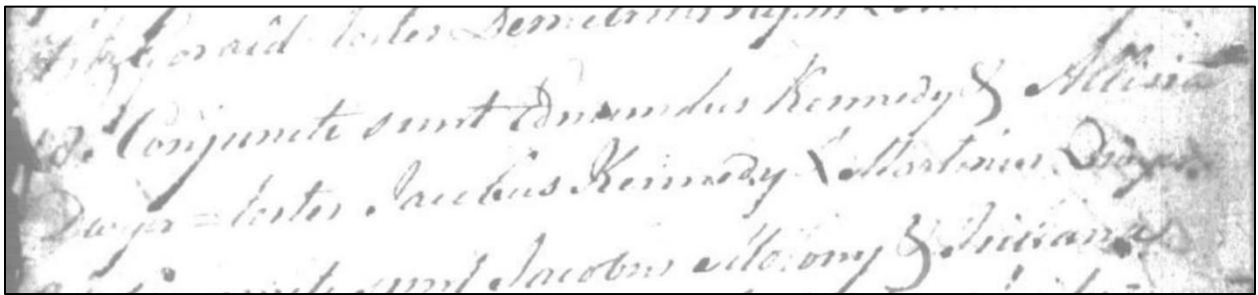 Fitzgerald testes
18. Conjuncti sunt Edmundus Kennedy & Allisia
Dwyer = testes Jacobus Kennedy & Martinus Dwyer
sunt Jacobus Molony & Juliana